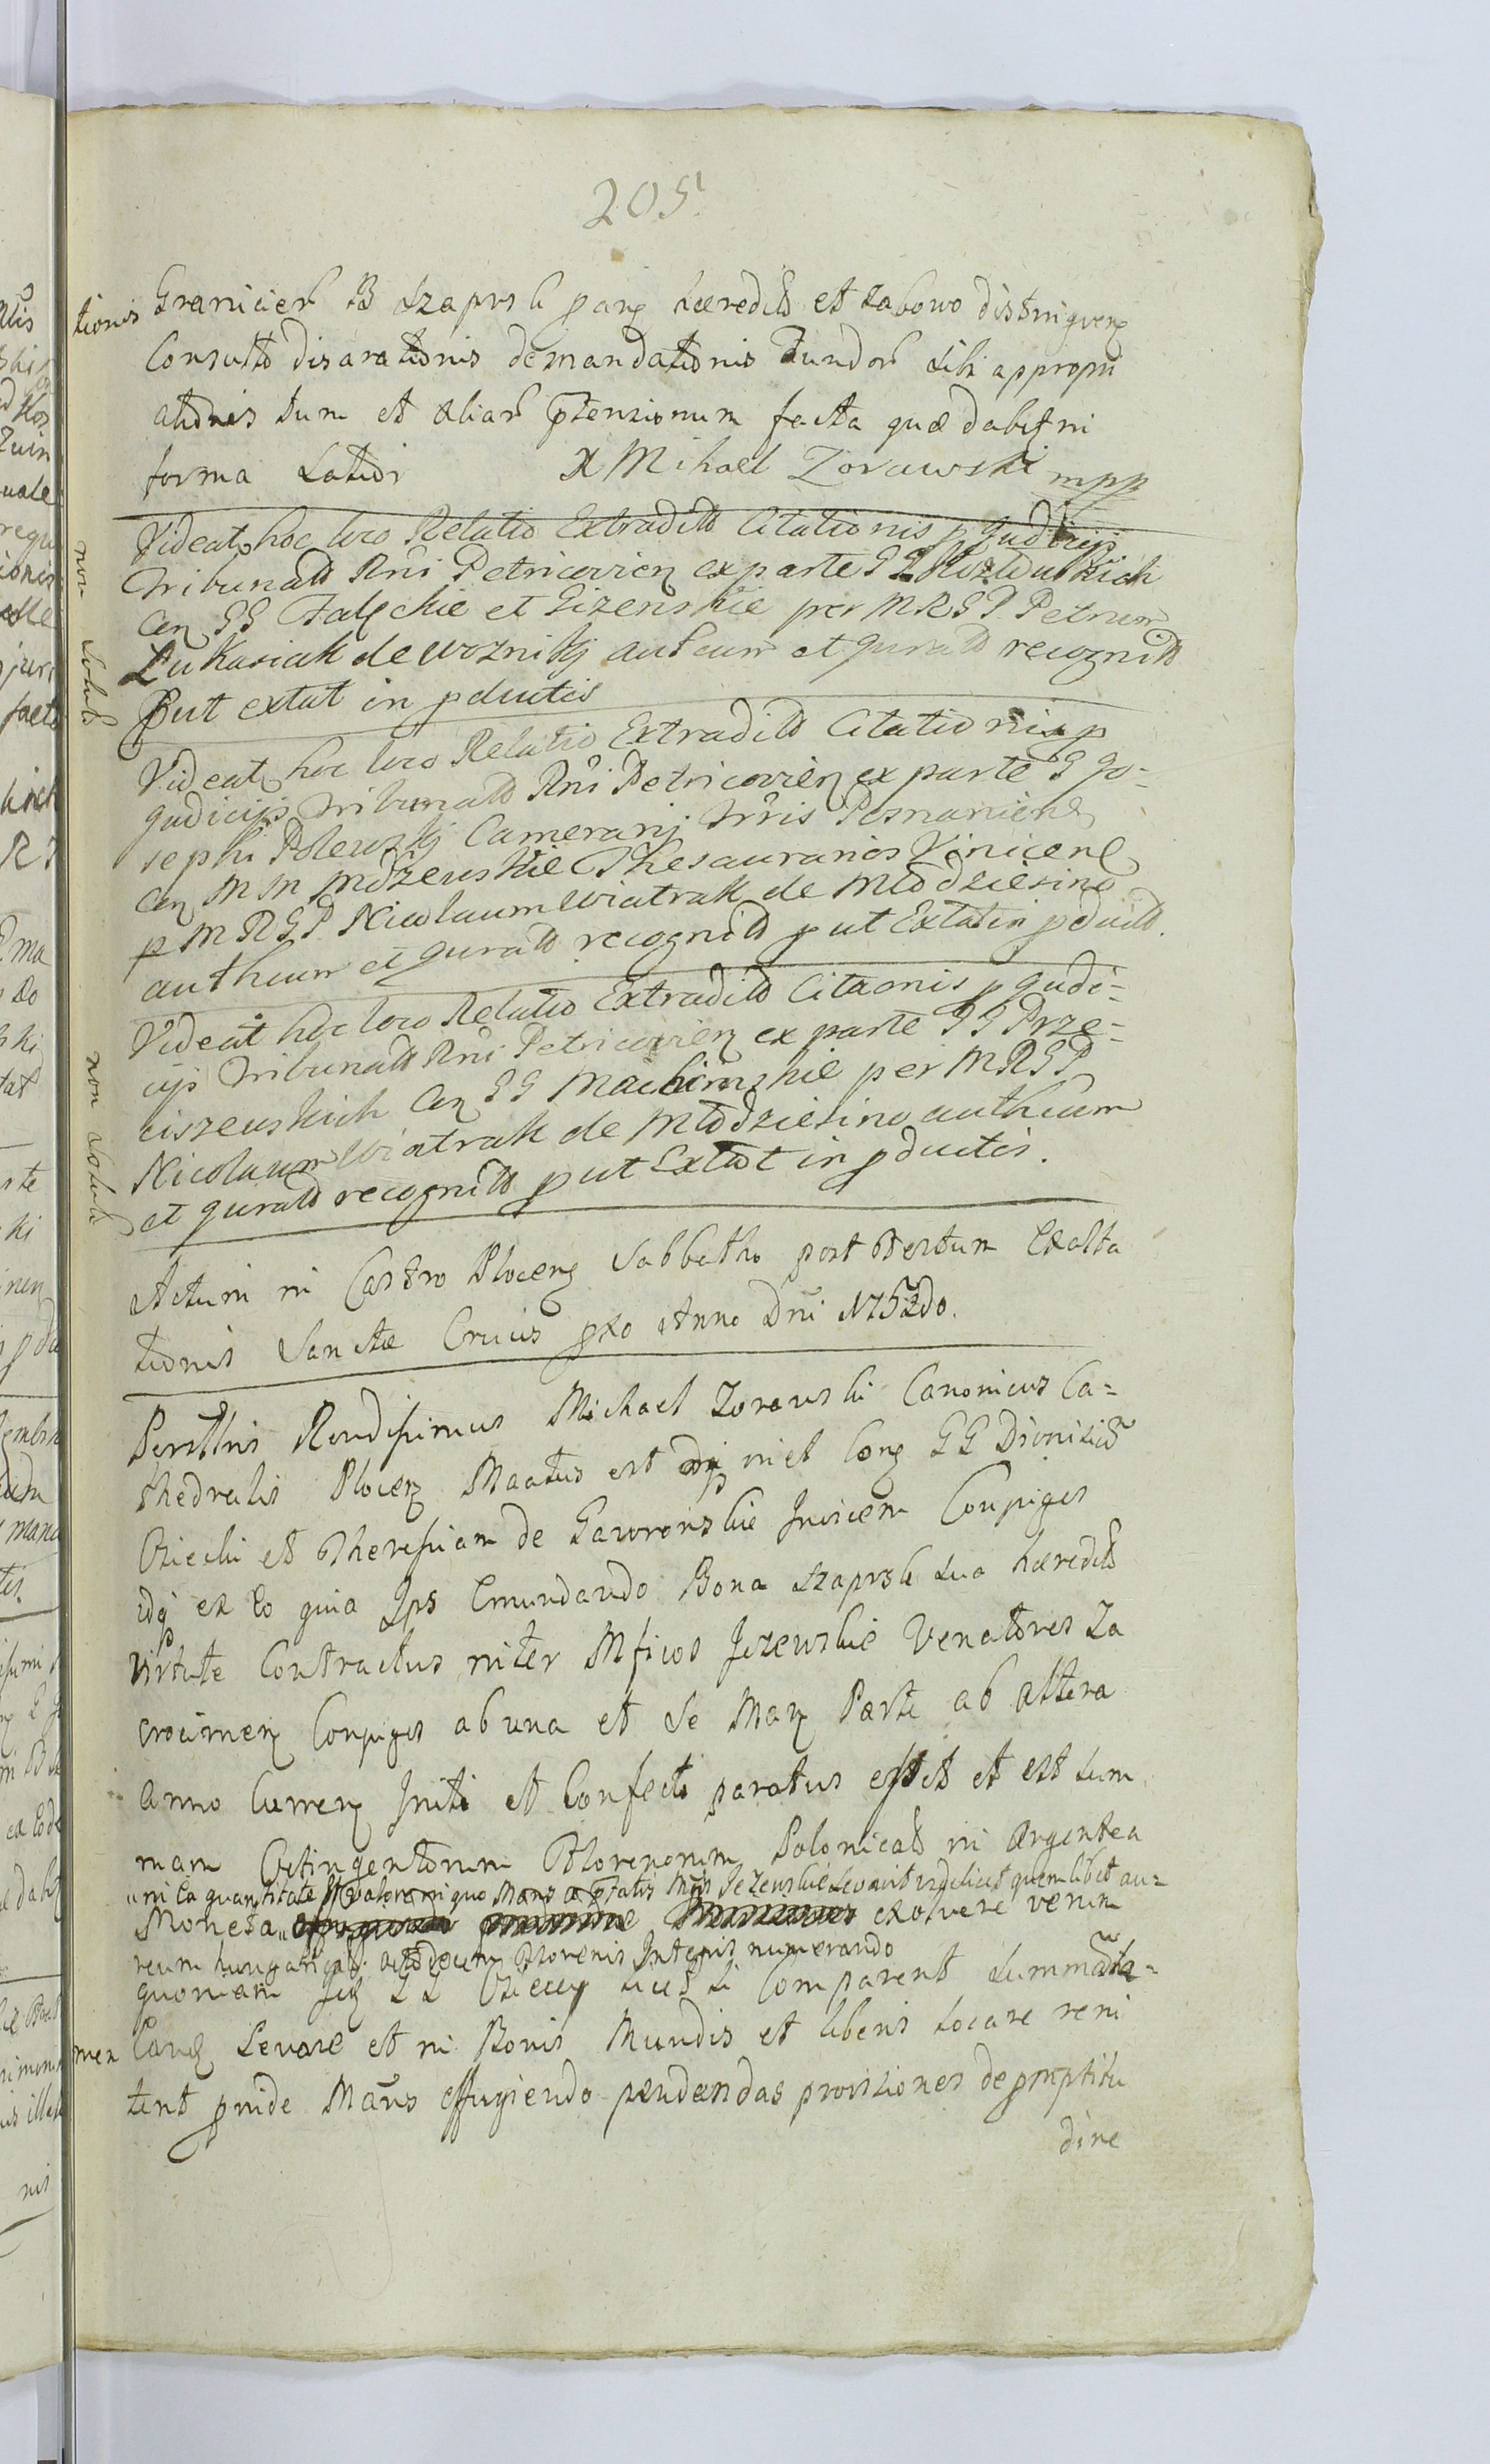 205
tionis Granicier B Szaprsk par hæredit et Zabowo distingven
Consulto disarationis demandationis fundor sibi appropri
ationis tum et aliar ptensionum facta quæ dabit in
forma Latiori X Mihael Zorawski mpp
Videat hoc loco Relatio Extradit Citationis p Judicijs
Tribunalt Rni Petricovien ex parte GG Kozłowskich
Cen GG Falęckie et Gizenskie per MRGP Petrum
Łukasiak de woznikj autheum et jurat recognitt
Put extat in pductis
non solut
Videat hoc loco Relatio Extradit Citationis p
Judicijs Tribunalt Rni Petricovien ex parte G Jo-
sephi Polewskj Camerarij Trris Posnaniens
Cen MM Mdzewskie Thesaurarios Vinicens
p MRGP Nicolaum Wiatrak de Młodziesino
autheum et jurat recognitt put Extat in pductt.
Videat hoc loco Relatio Extradit Citaonis p Judi-
cijs Tribunalt Rni Petricovien ex parte GG Prze-
ciszewskich Cen GG Machcinskie per MRGP
Nicolaum Wiatrak de Młodziesino autheum
et jurat recognitt put Extat in pductis.
non solut
Actum in Castro Plocen Sabbatho post Festum Exalta
tionis Sanctæ Crucis pxo Anno Dni 1752do.
Perillris Rendissimus Michael Zorawski Canonicus Ca-
thedralis Plocen Maatus est idq iniet Con GG Dionisiu
Osiecki et Theresiam de Gawronskie Invicem Conjuges
idq ex Eo quia Ips Emundando Bona Szaprsk sua hæredit
virtute Contractus inter Mficos Jezewskie Venatores Za
crocimen Conjuges ab una et se Man Parte ab altera
Anno Curren Initi et Confecti paratus extit et est sum
mam Octingentorum Florenorum Polonical in Argentea
"in Ea quantitate et valore in quo Mans a pfatis Mcis Jezewskie Levavit videlicet quemlibet au-
Moneta" exolvere verum
reum hungarical octodecim Florenis Integris numerando
quoniam GG Osieccy licet si Comparent Summa ta-
men Levare et in Bonis Mundis et liberis Locare reni
tent pinde Mans effugiendo pendendas provisiones de pmptitu
dine